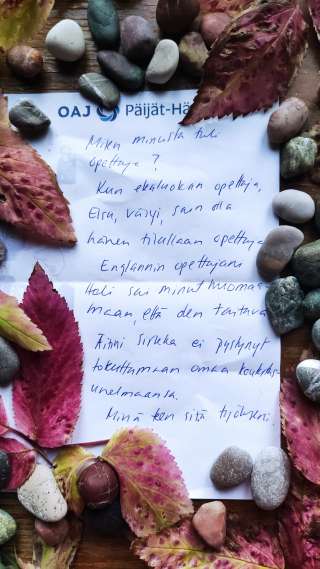 OAJ Päijät-Hä
Miten minusta tuli
opettaja?
Kun ekaluokan opettaja,
Elsu, väsyi, sain olla
hänen tilallaan opettaja
Englannin opettajani
Heli sai minut huomaa-
maan, että olen taitava
Äitini Sirkka ei pystynyt
toteuttamaan omaa koulutus-
unelmaansa.
Minä teen sitä työkseni.